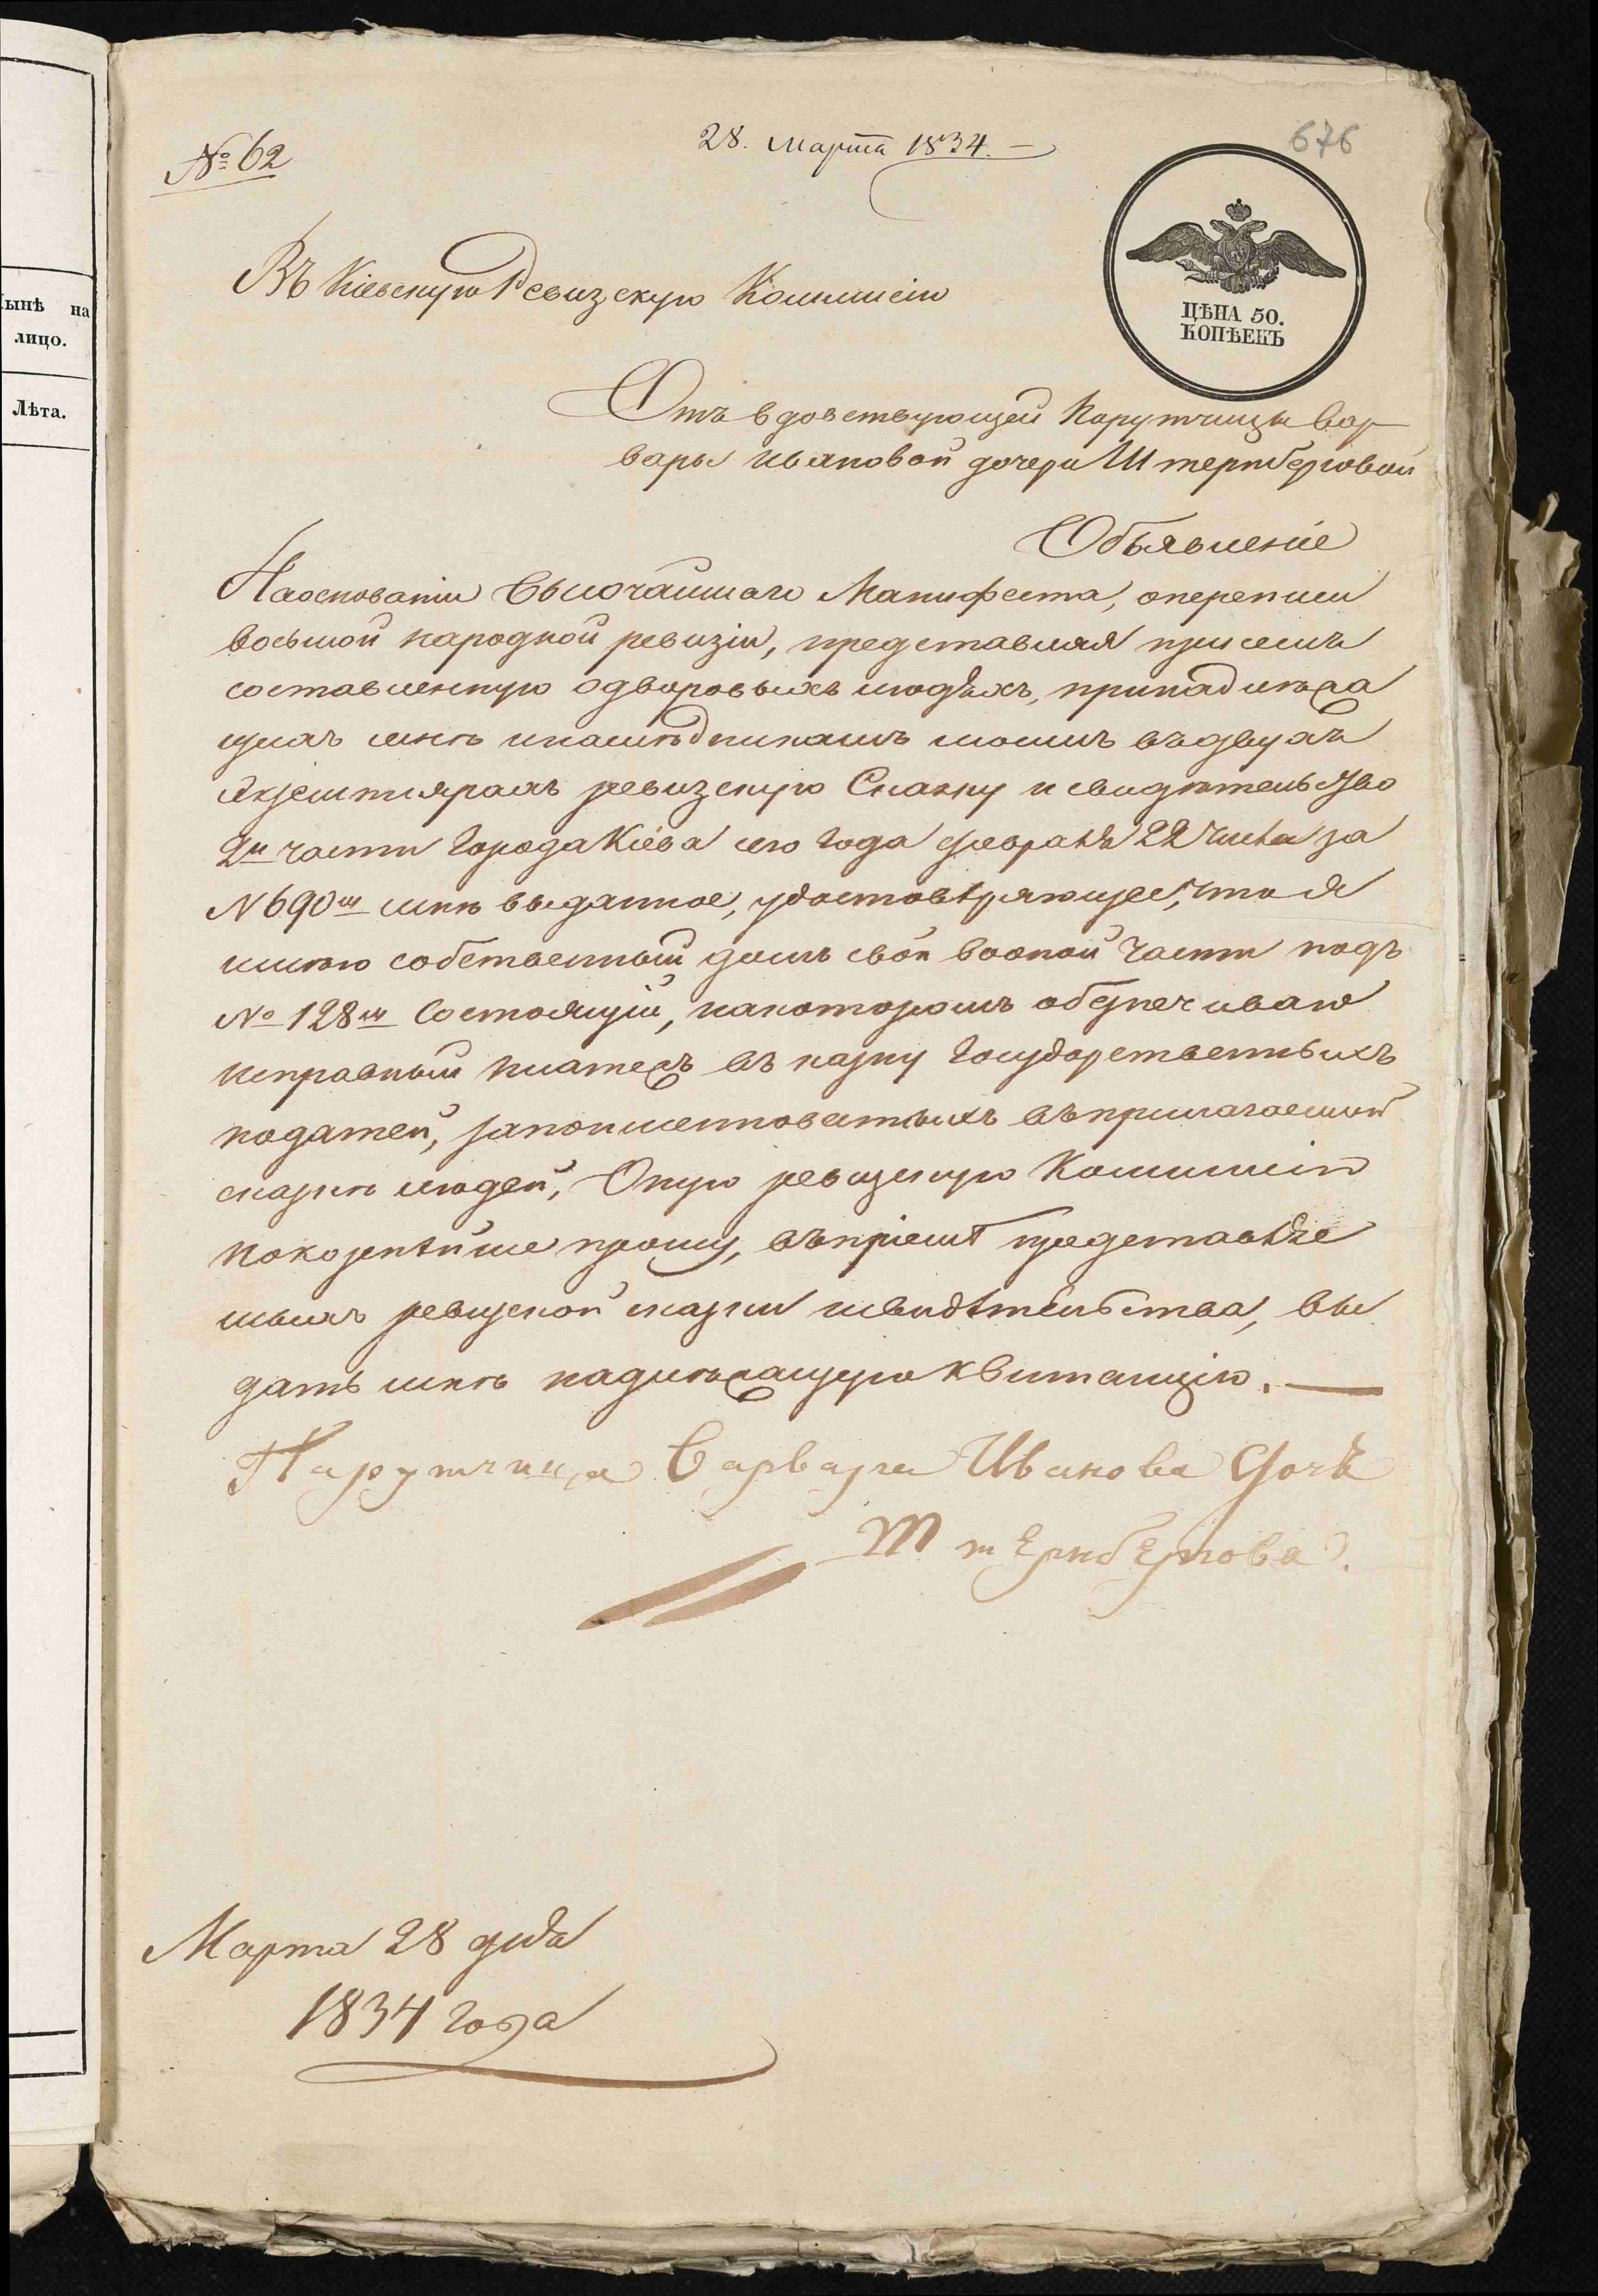 ынѣ на
лицо.
Лѣта.
№ 62
28. Марта 1834. —
676
ЦѢНА 50.
КОПѢЕКЪ
Въ Кіевскую Ревизскую Коммисію
Отъ вдовствующей Порутчицы Вар
вары Ивановой дочери Штернберговой
Объявленіе
На основаніи Высочайшаго Манифеста, о переписи
восьмой народной ревизіи, представляя при семъ
составленную о дворовыхъ людяхъ, принадлежа
щихъ мнѣ и наслѣдникамъ моимъ въ двухъ
экземплярахъ ревизскую Сказку и свидѣтельство
2й части Города Кіева сего года февраля 22 числа за
N 690м мнѣ выданное, удостовѣряющее, что я
имѣю собственный домъ свой во оной части подъ
№ 128м Состоящій, на которомъ обезпечиваю
исправный платежъ въ казну Государственныхъ
податей, за поименнованныхъ въ прилагаемой
сказкѣ людей, Оную ревизскую Коммисію
покорнѣйше прошу, въ пріемѣ представляе
мыхъ ревизской сказки и свидѣтельства, вы
дать мнѣ надлежащую квитанцію. —
Парутчица Варвара Иванова Дочь
Штернбергова.
Марта 28 дня
1834 года